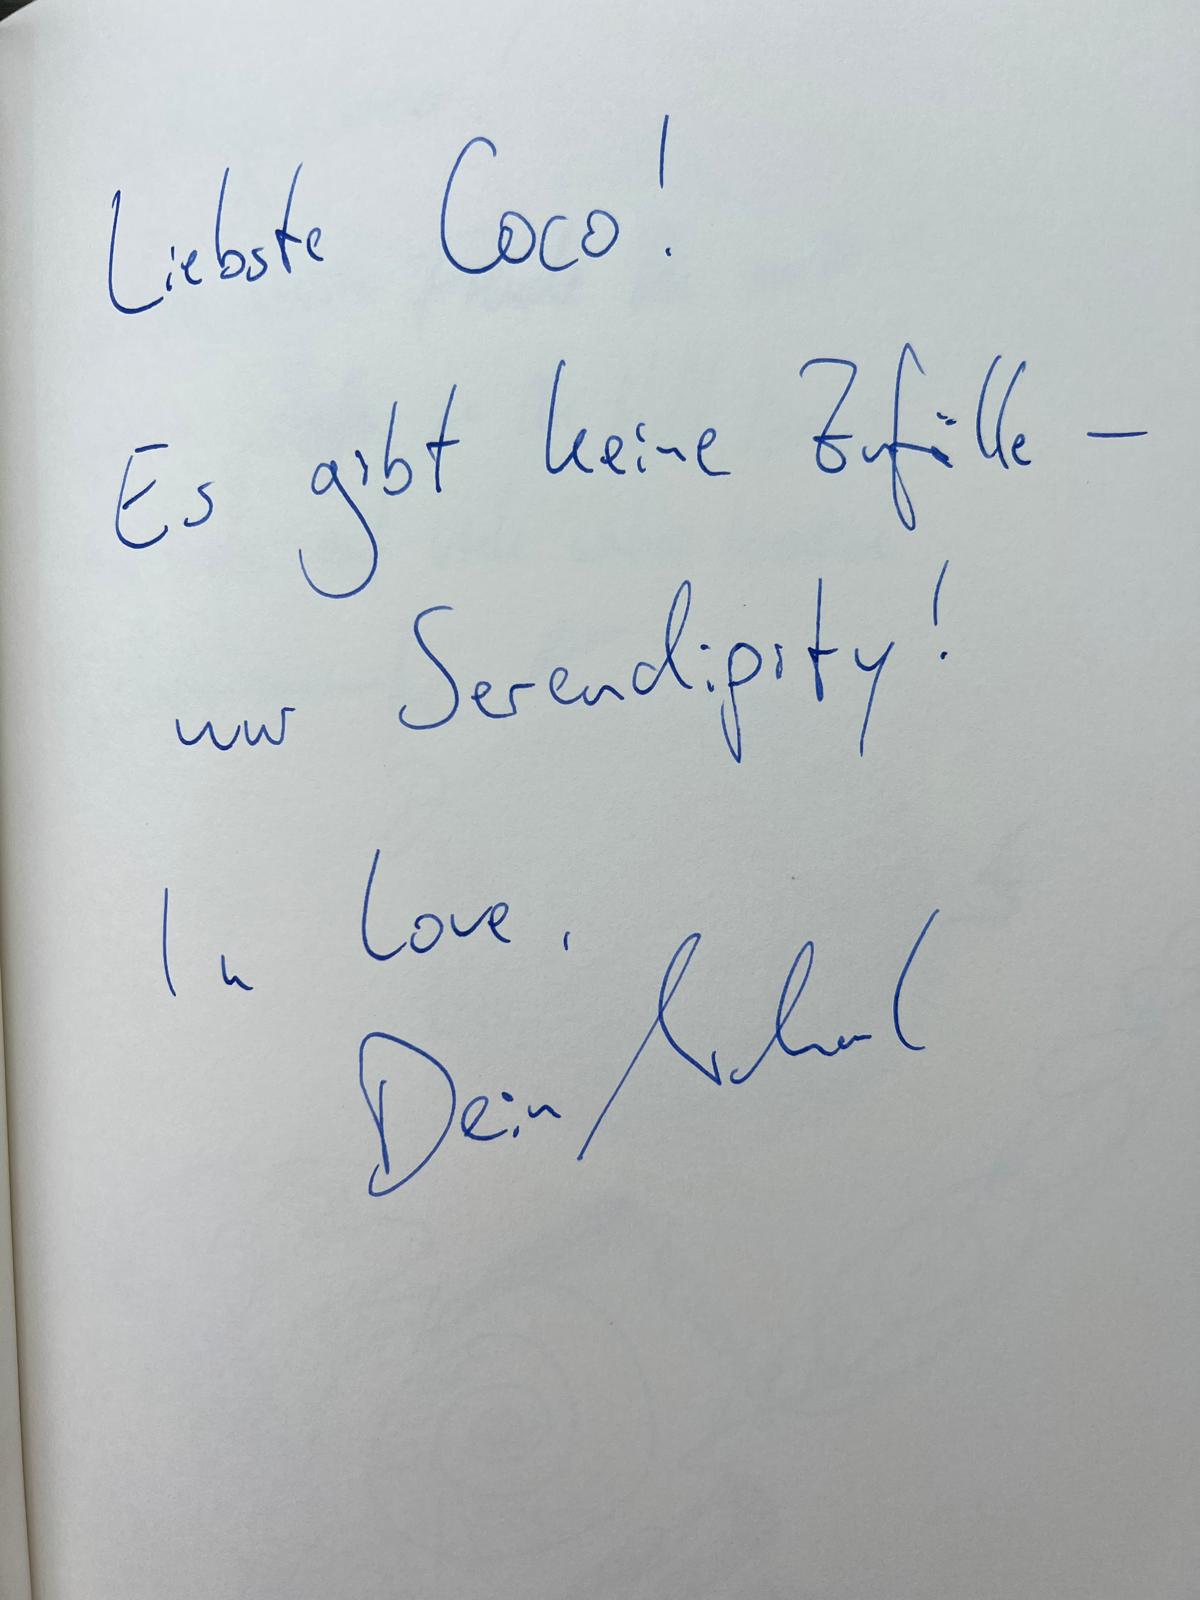 Liebste Coco!
Es gibt keine Zufälle –
nur Serendipity!
In Love,
Dein